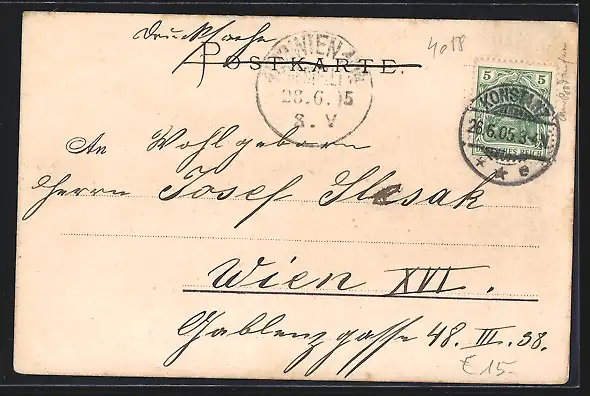 Drucksache
4018
POSTKARTE.
WIEN
28.6.05
8.V
5 5
KONSTANZ
26.6.05.
DEUTSCHES REICH
An Wohlgeboren
Herrn Josef Slesak
Wien XVI.
Gablenzgasse 48. III. 38.
€ 15.-